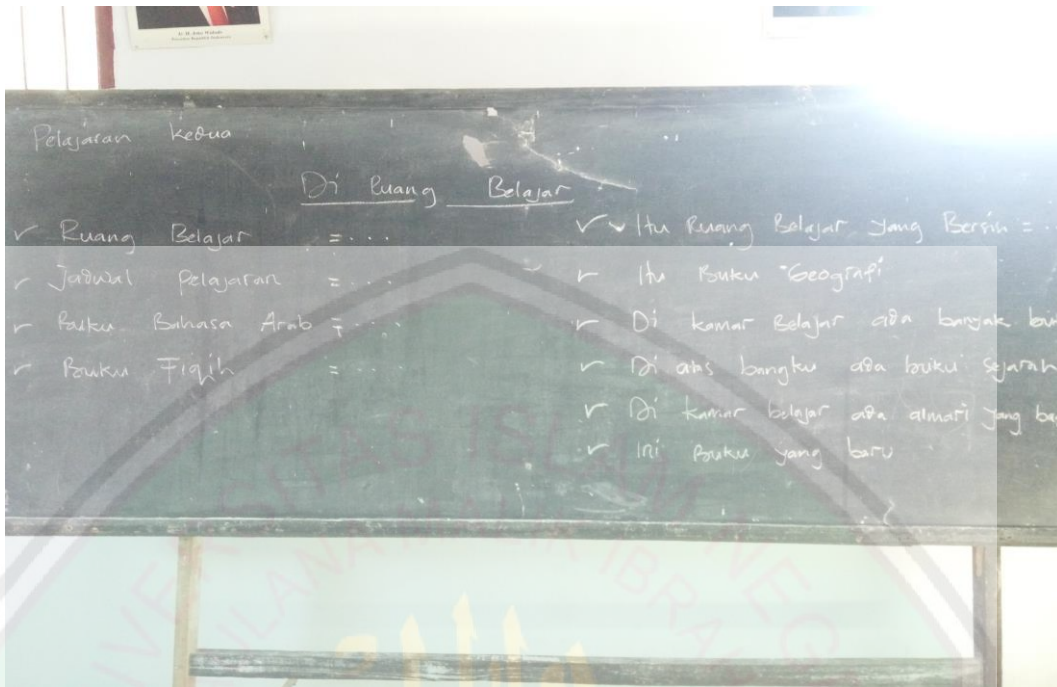 Pelajaran Kedua
Di Ruang Belajar
✓ Ruang Belajar = ....
✓ Jadwal Pelajaran = ....
✓ Buku Bahasa Arab = ....
✓ Buku Fiqih = ....
✓ ✓ Itu Ruang Belajar yang Bersih = .
✓ Itu Buku Geografi
✓ Di kamar Belajar ada banyak
✓ Di atas bangku ada buku sejarah
✓ Di kamar belajar ada almari yang ba
✓ Ini Buku yang baru